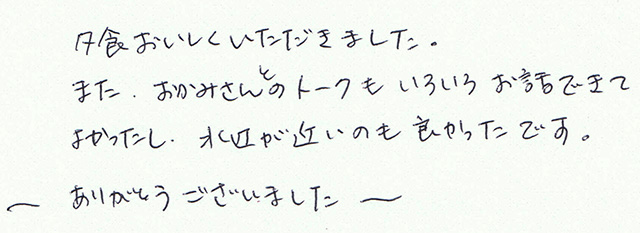 夕食おいしくいただきました。
また、おかみさんとのトークもいろいろお話できて
よかったし、水辺が近いのも良かったです。
〜 ありがとうございました 〜